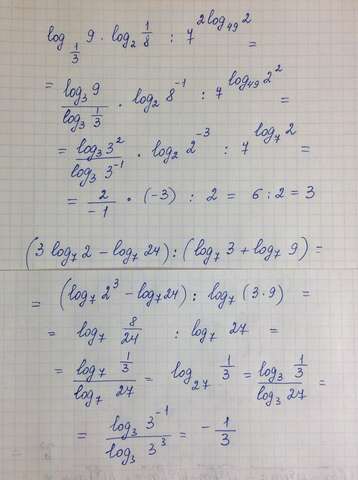 log_{1/3} 9 · log_2 1/8 : 7^{2log_{49}2} =
= log_3 9 / log_3 1/3 · log_2 8^{-1} : 7^{log_{49}2^2} =
= log_3 3^2 / log_3 3^{-1} · log_2 2^{-3} : 7^{log_7 2} =
= 2/-1 · (-3) : 2 = 6 : 2 = 3
(3 log_7 2 - log_7 24) : (log_7 3 + log_7 9) =
= (log_7 2^3 - log_7 24) : log_7 (3·9) =
= log_7 8/24 : log_7 27 =
= log_7 1/3 / log_7 27 = log_{27} 1/3 = log_3 1/3 / log_3 27 =
= log_3 3^{-1} / log_3 3^3 = - 1/3